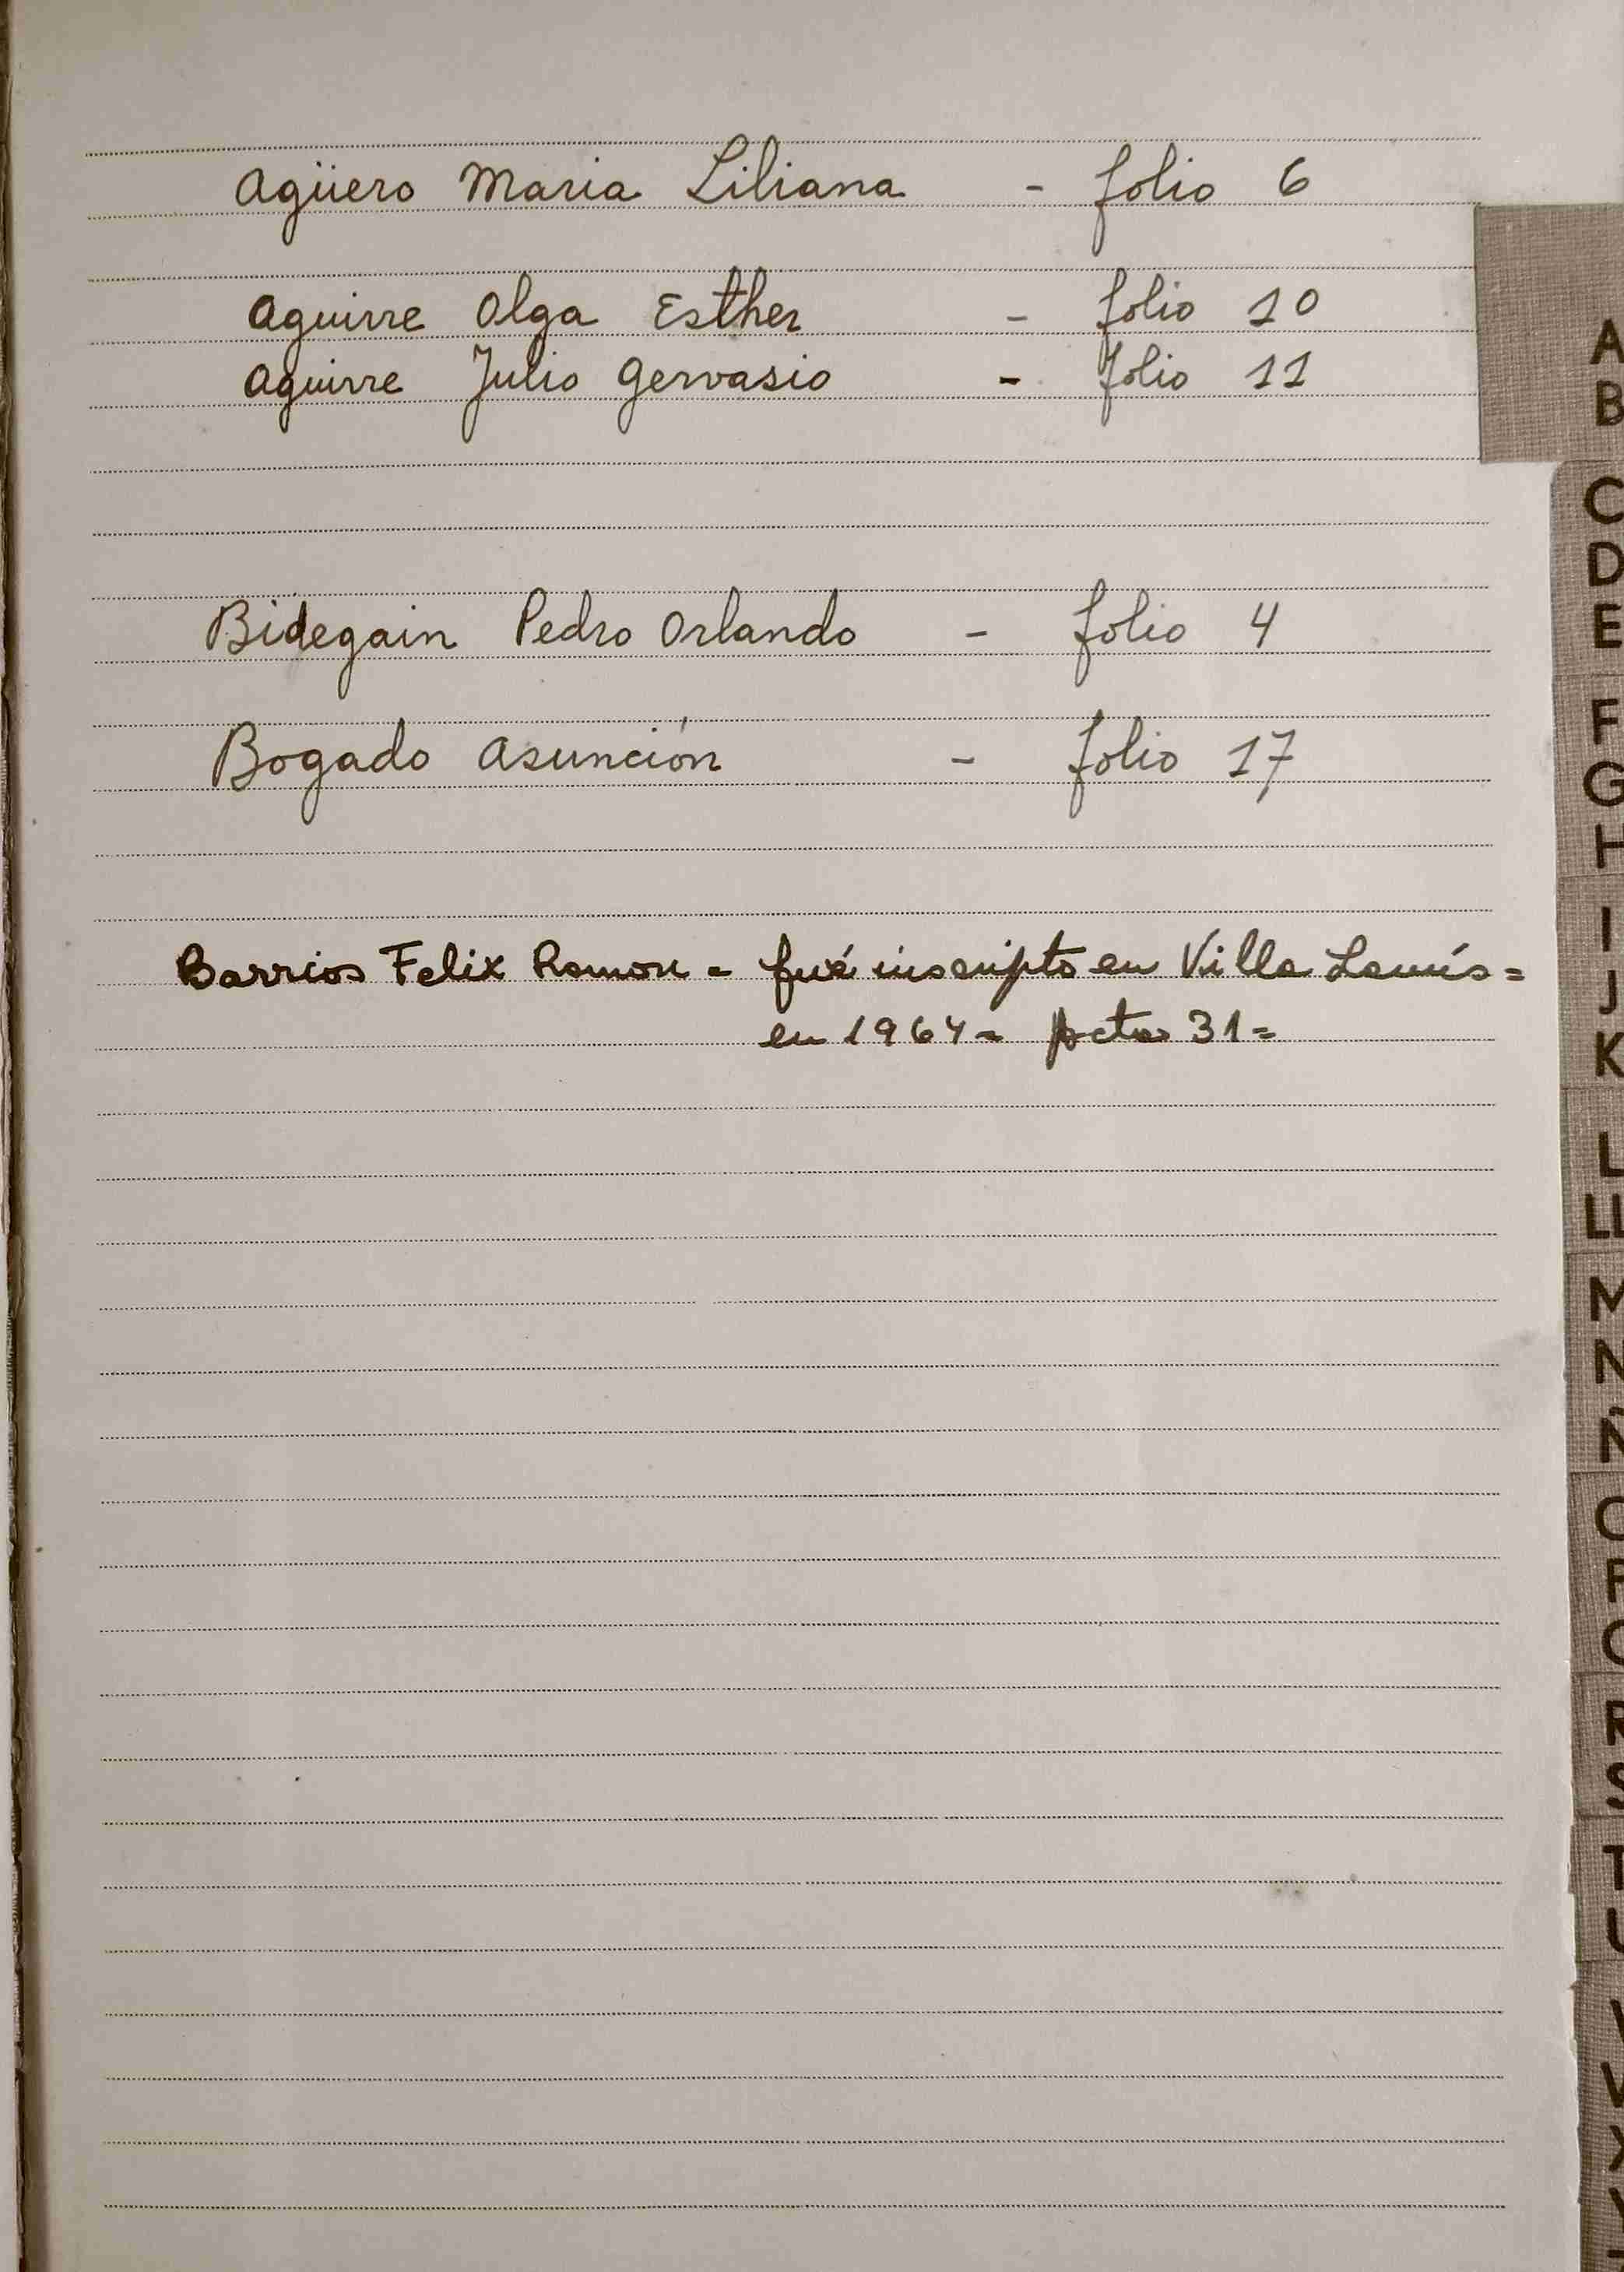 Agüero Maria Liliana - folio 6
Aguirre Olga Esther - folio 10
Aguirre Julio Gervasio - folio 11
Bidegain Pedro Orlando - folio 4
Bogado Asunción - folio 17
Barrios Felix Ramon = fué inscripto en Villa Lanús =
en 1964 = Acta 31 =
A
B
C
D
E
F
G
I
J
K
L
M
N
R
S
T